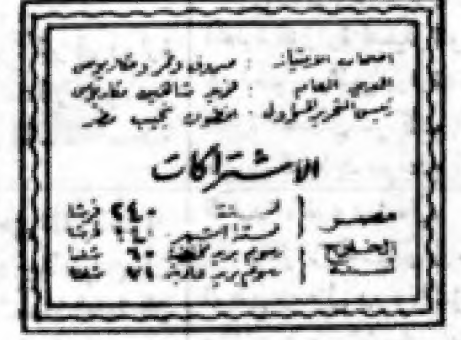 اصحاب الامتياز : صروف ونمر ومكاريوس
المدير العام : فريد شاهين مكاريوس
رئيس التحرير المسؤول : انطون نجيب مطر
الاشتراكات
مصر لسنة ٢٤٠ قرشا
لستة اشهر ١٤٠ قرشا
الخارج رسوم بريد ٦٠ شلنا
لسنة رسوم بريد شلنا